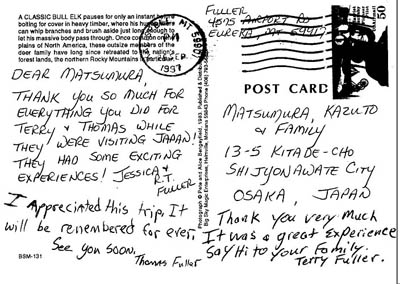 A CLASSIC BULL ELK pauses for only an instant before
bolting for cover in heavy timber, where his
can whip branches and brush aside just long enough to
let his massive body pass through. Once common on the
plains of North America, these outsize members of the
deer family have long since retreated to the nation's
forest lands, the northern Rocky Mountains in particular.
DEAR MATSUMURA,
THANK YOU SO MUCH FOR
EVERYTHING YOU DID FOR
TERRY & THOMAS WHILE
THEY WERE VISITING JAPAN!
THEY HAD SOME EXCITING
EXPERIENCES! JESSICA &
R.T.
FULLER
I Appreciated this trip. It
will be remembered for ever.
See you soon.
Thomas Fuller
BSM-131
Photograph © Pete and Alice Bengeyfield, 1993. Published & Distributed
Big Sky Magic Enterprises, Helmville, Montana 59843 Phone (406) 793-
MT
1997
FULLER
AIRPORT RD
EUREKA, MT 59917
50
POST CARD
MATSUMURA, KAZUTO
& FAMILY
13-5 KITADE-CHO
SHIJYONAWATE CITY
OSAKA, JAPAN
Thank you very Much
It was a great Experience
Say Hi to your Family.
Terry Fuller.